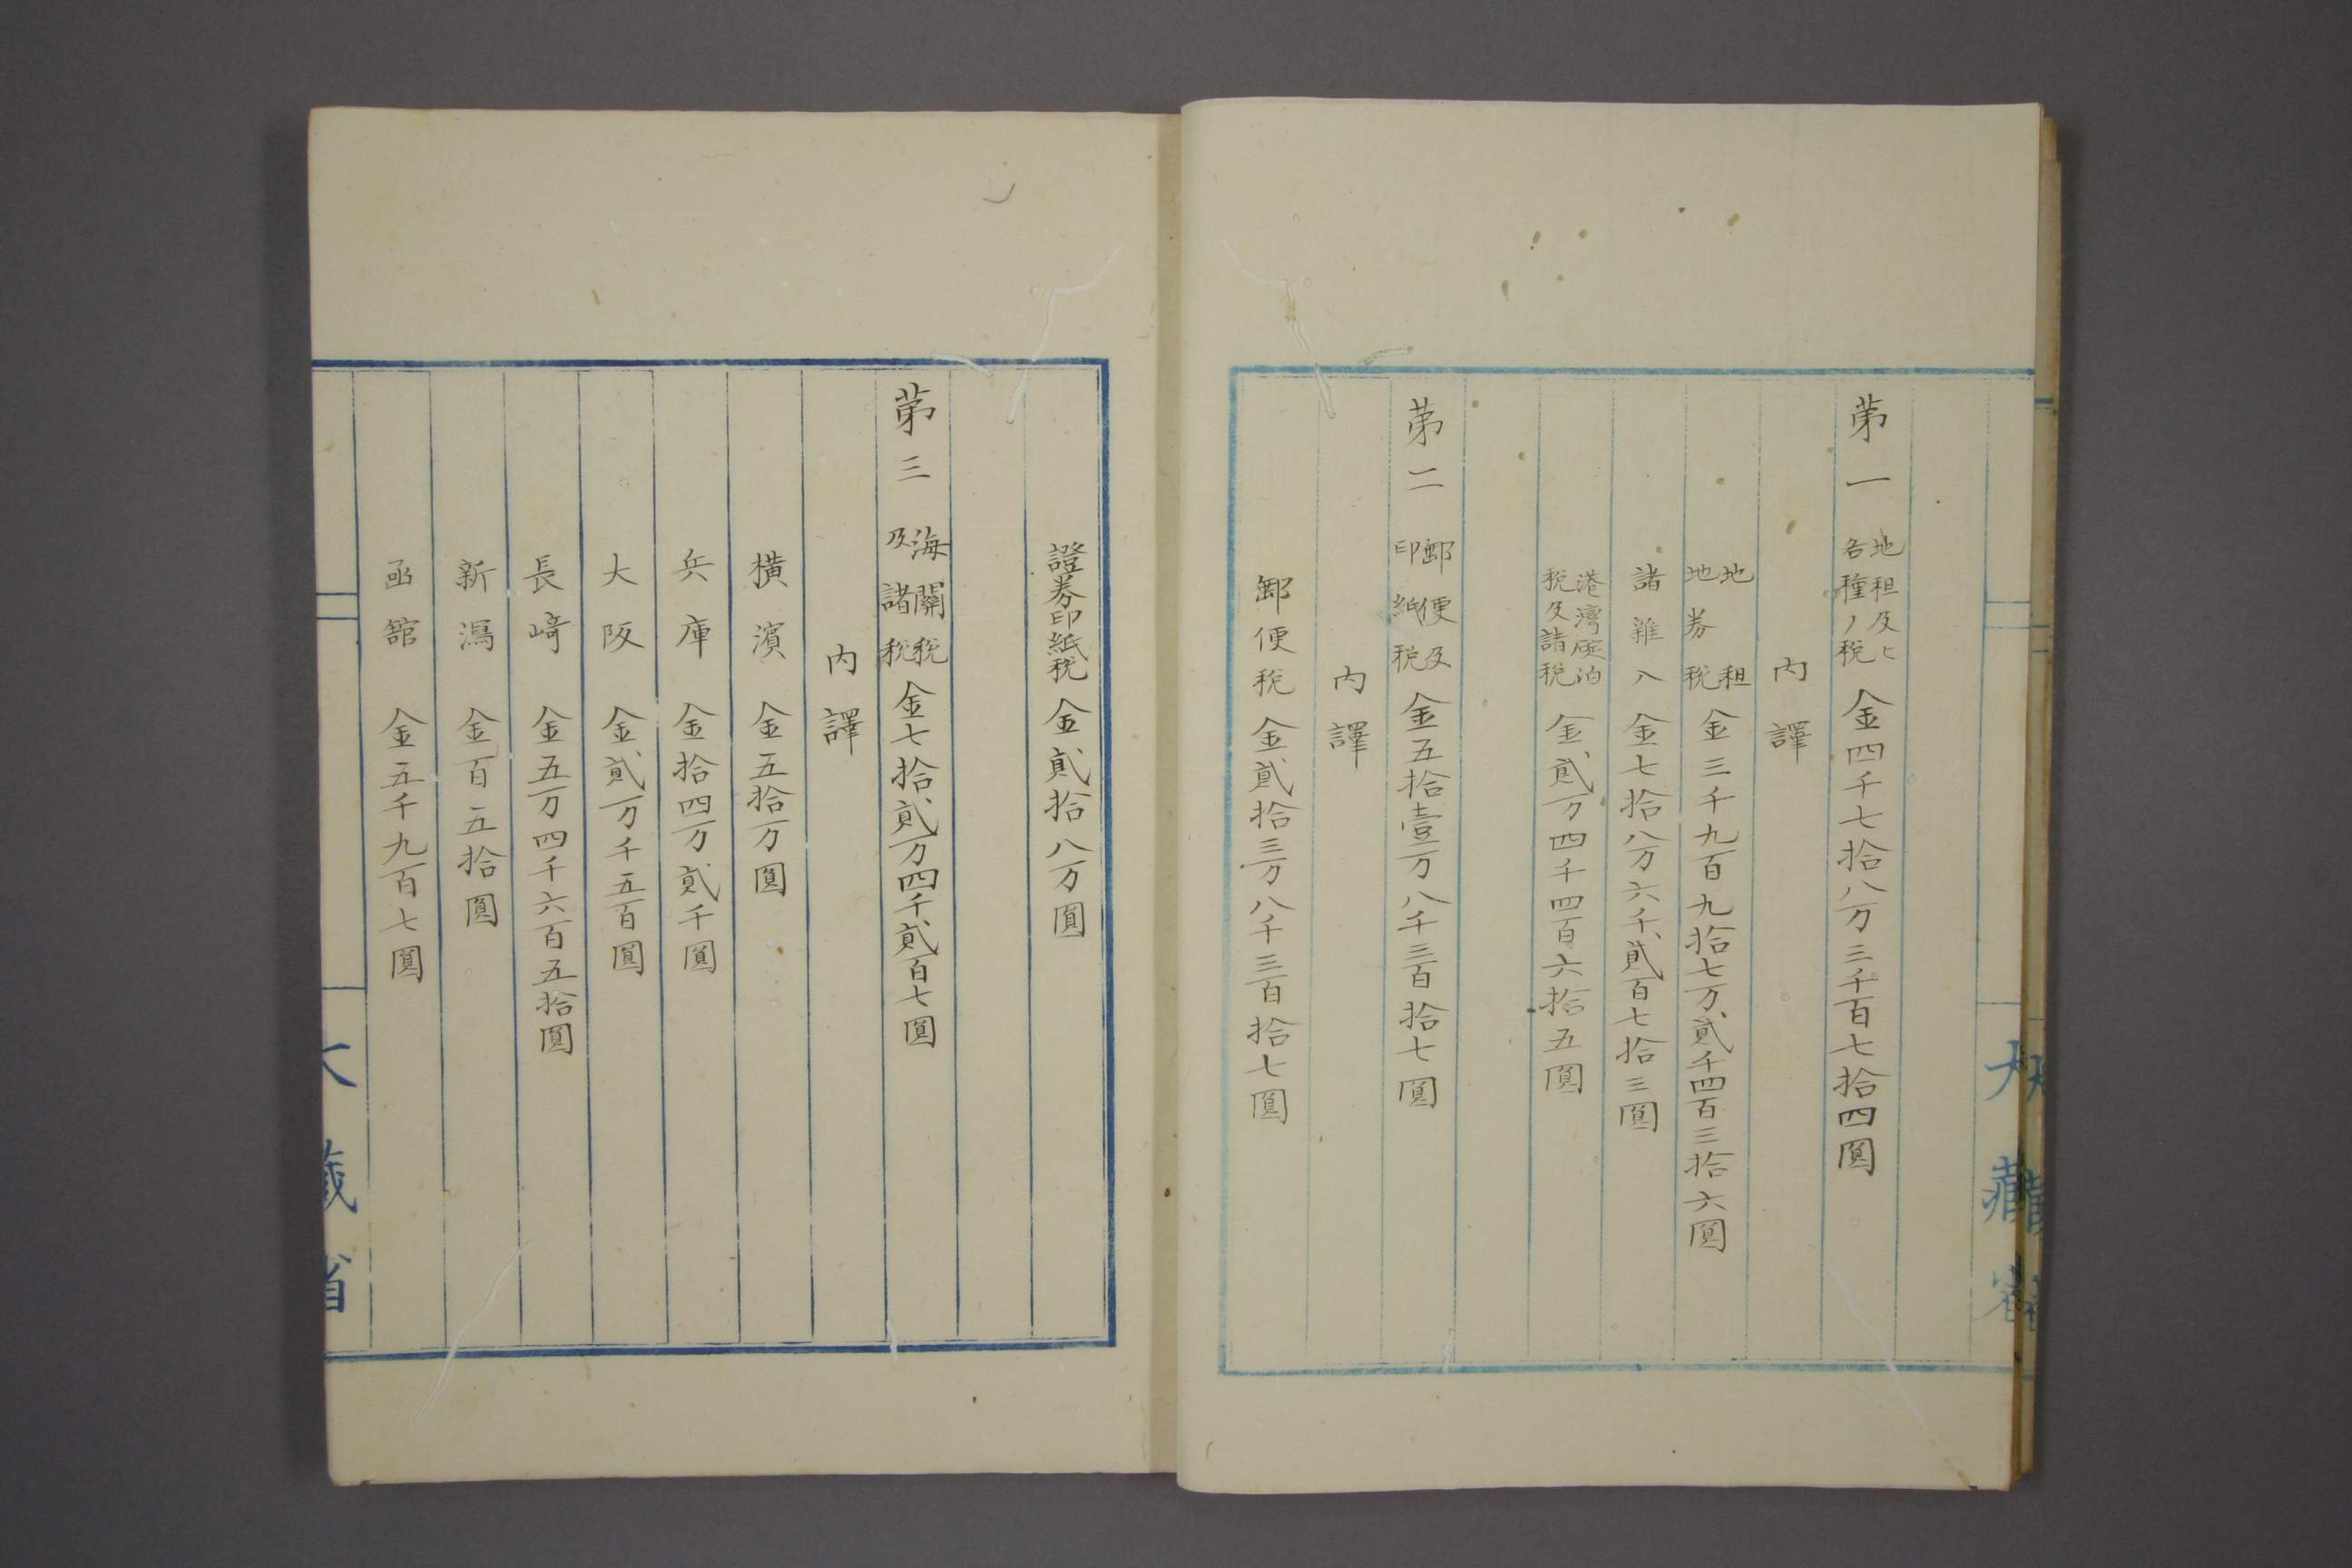 第一 地租及ヒ各種ノ税 金四千七拾八万三千百七拾四圓
内譯
地租地券税 金三千九百九拾七万貳千四百三拾六圓
諸雜入 金七拾八万六千貳百七拾三圓
港灣碇泊税及諸税 金貳万四千四百六拾五圓
第二 郵便及印紙税 金五拾壹万八千三百拾七圓
内譯
郵便税 金貳拾三万八千三百拾七圓
大藏省
證券印紙税 金貳拾八万圓
第三 海關税及諸税 金七拾貳万四千貳百七圓
内譯
横濱 金五拾万圓
兵庫 金拾四万貳千圓
大阪 金貳万千五百圓
長﨑 金五万四千六百五拾圓
新潟 金百五拾圓
函舘 金五千九百七圓
大藏省